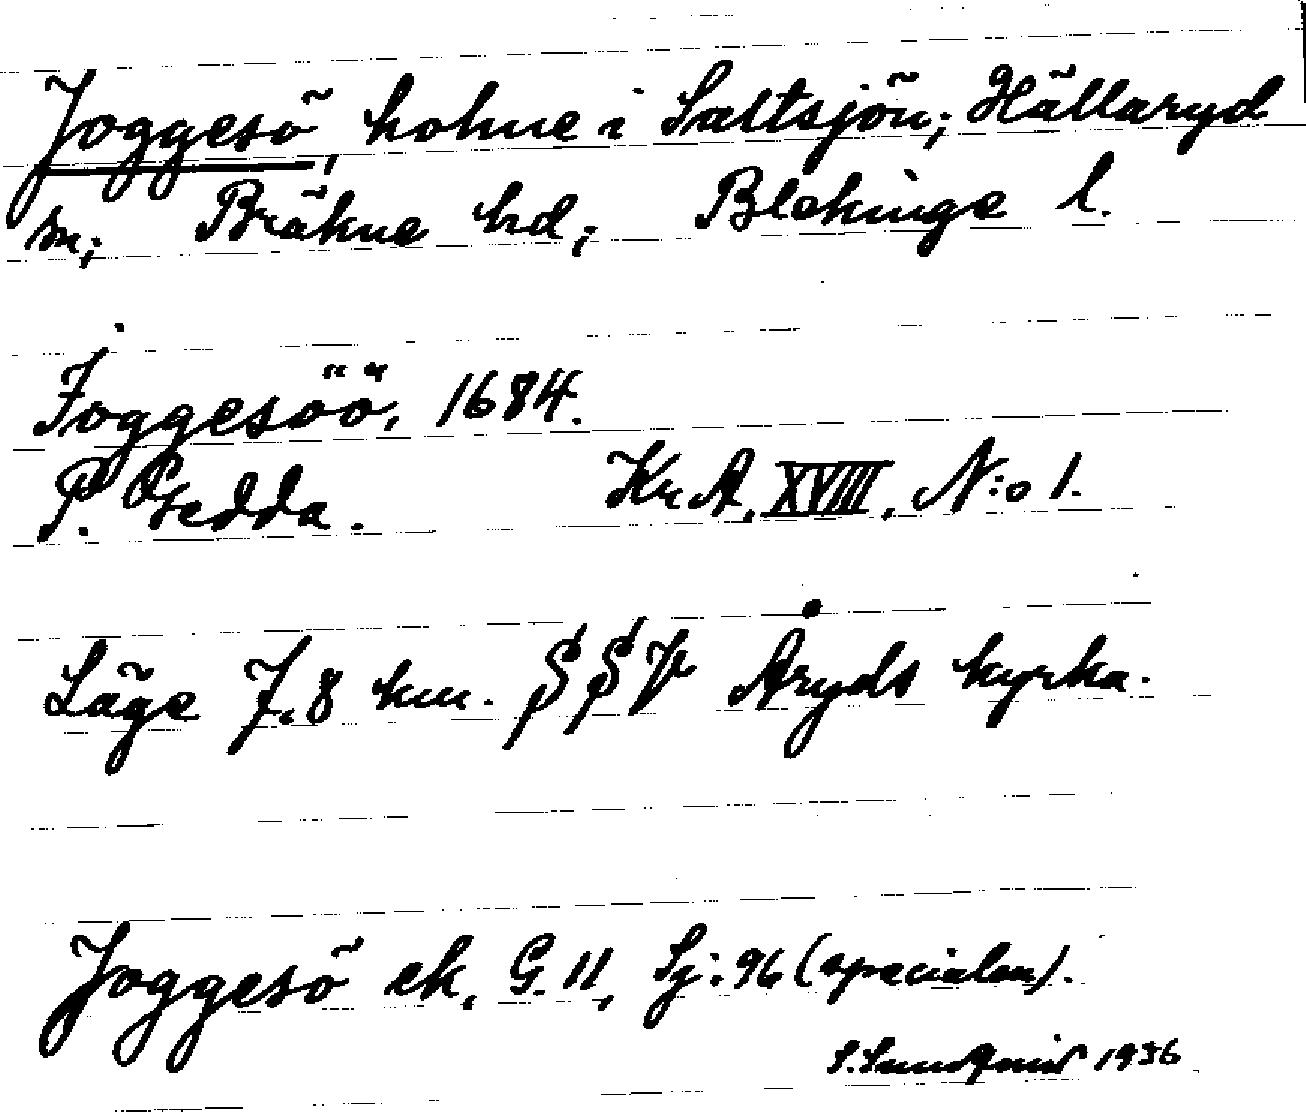 Joggesö, holme i Saltsjön; Hällaryd
sn; Bräkne hd; Blekinge l.
Joggesöö, 1684.
P. Gedda. Kr.A. XVIII, N:o 1.
Läge 7,8 km. SSV Åryds kyrka.
Joggesö ek, G. 11, Sj: 96 (specialen).
S. Sundqvist 1936